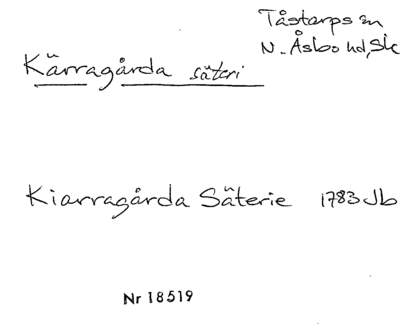 Tåstarps sn
N. Åsbo hd, Sk
Kärragårda säteri
Kiarragårda Säterie 1783 Jb
Nr 18519